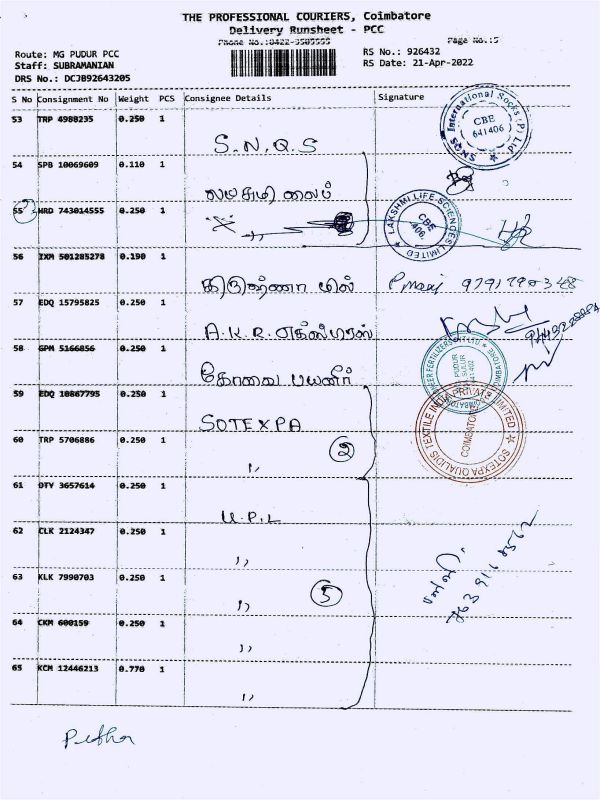 THE PROFESSIONAL COURIERS, Coimbatore
Delivery Runsheet - PCC
Phone No.:0422-3505555
Page No.:5
Route: MG PUDUR PCC
Staff: SUBRAMANIAN
DRS No.: DCJB92643205
RS No.: 926432
RS Date: 21-Apr-2022
S No Consignment No Weight PCS Consignee Details Signature
53 TRP 4980235 0.250 1 S.N.Q.S
SNQS International Socks (P) Ltd CBE 641406
54 SPB 10069609 0.110 1 லட்சுமி லைப்
55 HRD 743014555 0.250 1 ,,
LAKSHMI LIFE SCIENCES LIMITED CBE 406
56 IXM 501285278 0.190 1 கிருஷ்ணா மில்
57 EDQ 15795825 0.250 1 A.K.R. எக்ஸ்பிரஸ்
58 GPM 5166856 0.250 1 கோவை பயனீர்
PUDUR SULUR
59 EDQ 10867795 0.250 1 SOTEXPA
SOTEXPA QUALIDIS TEXTILE INDIA PRIVATE LIMITED COIMBATORE
60 TRP 5706886 0.250 1 ,, 2
61 OTY 3657614 0.250 1 U.P.L
62 CLK 2124347 0.250 1 ,,
63 KLK 7990703 0.250 1 ,, 5
64 CKM 600159 0.250 1 ,,
65 KCM 12446213 0.770 1 ,,